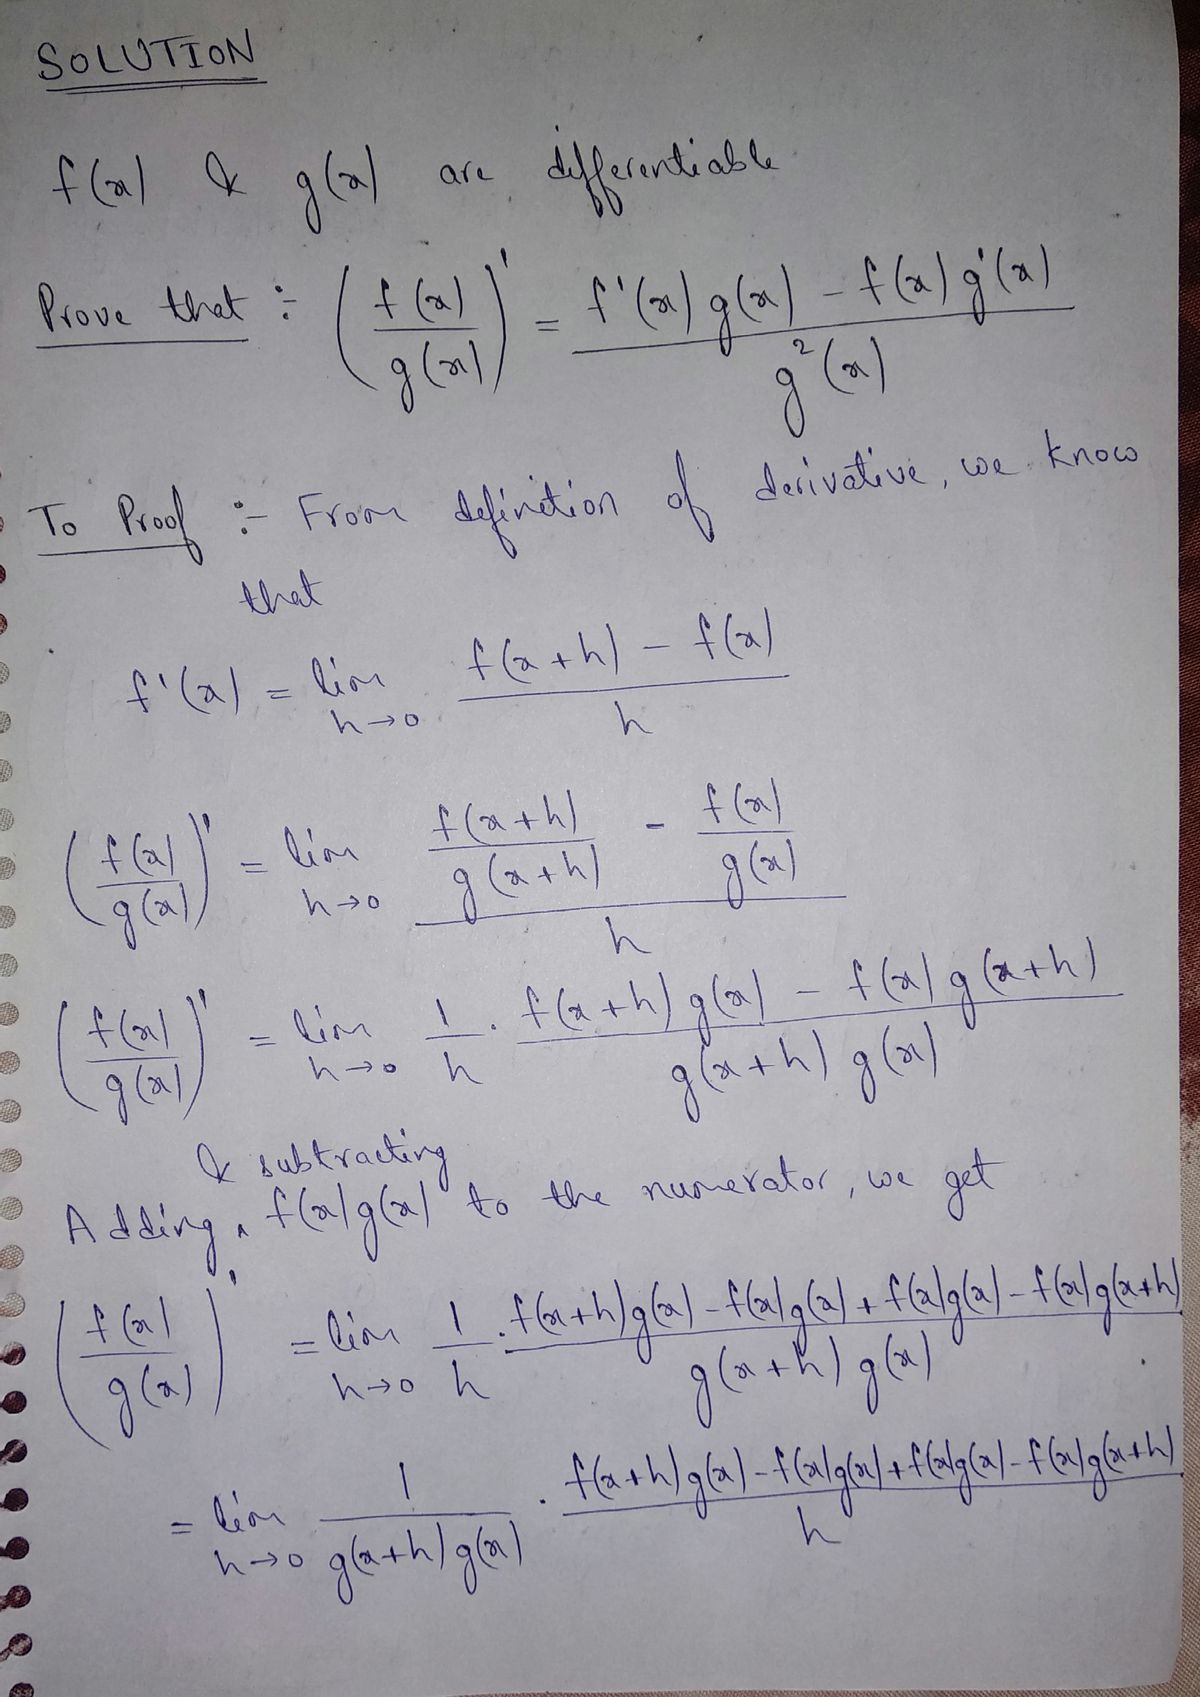 SOLUTION
f(x) & g(x) are differentiable
Prove that :- (f(x)/g(x))' = (f'(x) g(x) - f(x) g'(x))/(g²(x))
To Proof :- From definition of derivative, we know
that
f'(x) = lim h→0 (f(x+h) - f(x))/h
(f(x)/g(x))' = lim h→0 (f(x+h)/g(x+h) - f(x)/g(x))/h
(f(x)/g(x))' = lim h→0 1/h · (f(x+h) g(x) - f(x) g(x+h))/(g(x+h) g(x))
Adding & subtracting f(x)g(x) to the numerator, we get
(f(x)/g(x))' = lim h→0 1/h · (f(x+h)g(x) - f(x)g(x) + f(x)g(x) - f(x)g(x+h))/(g(x+h) g(x))
= lim h→0 1/(g(x+h) g(x)) · (f(x+h)g(x) - f(x)g(x) + f(x)g(x) - f(x)g(x+h))/h